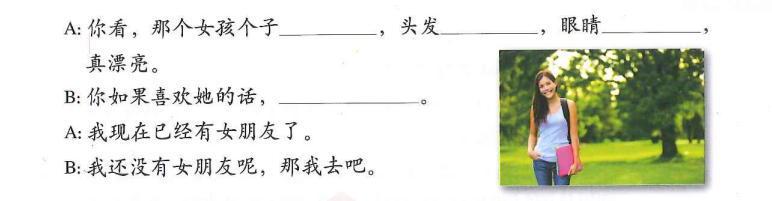 A: 你看，那个女孩个子__________，头发__________，眼睛__________，
真漂亮。
B: 你如果喜欢她的话，______________。
A: 我现在已经有女朋友了。
B: 我还没有女朋友呢，那我去吧。